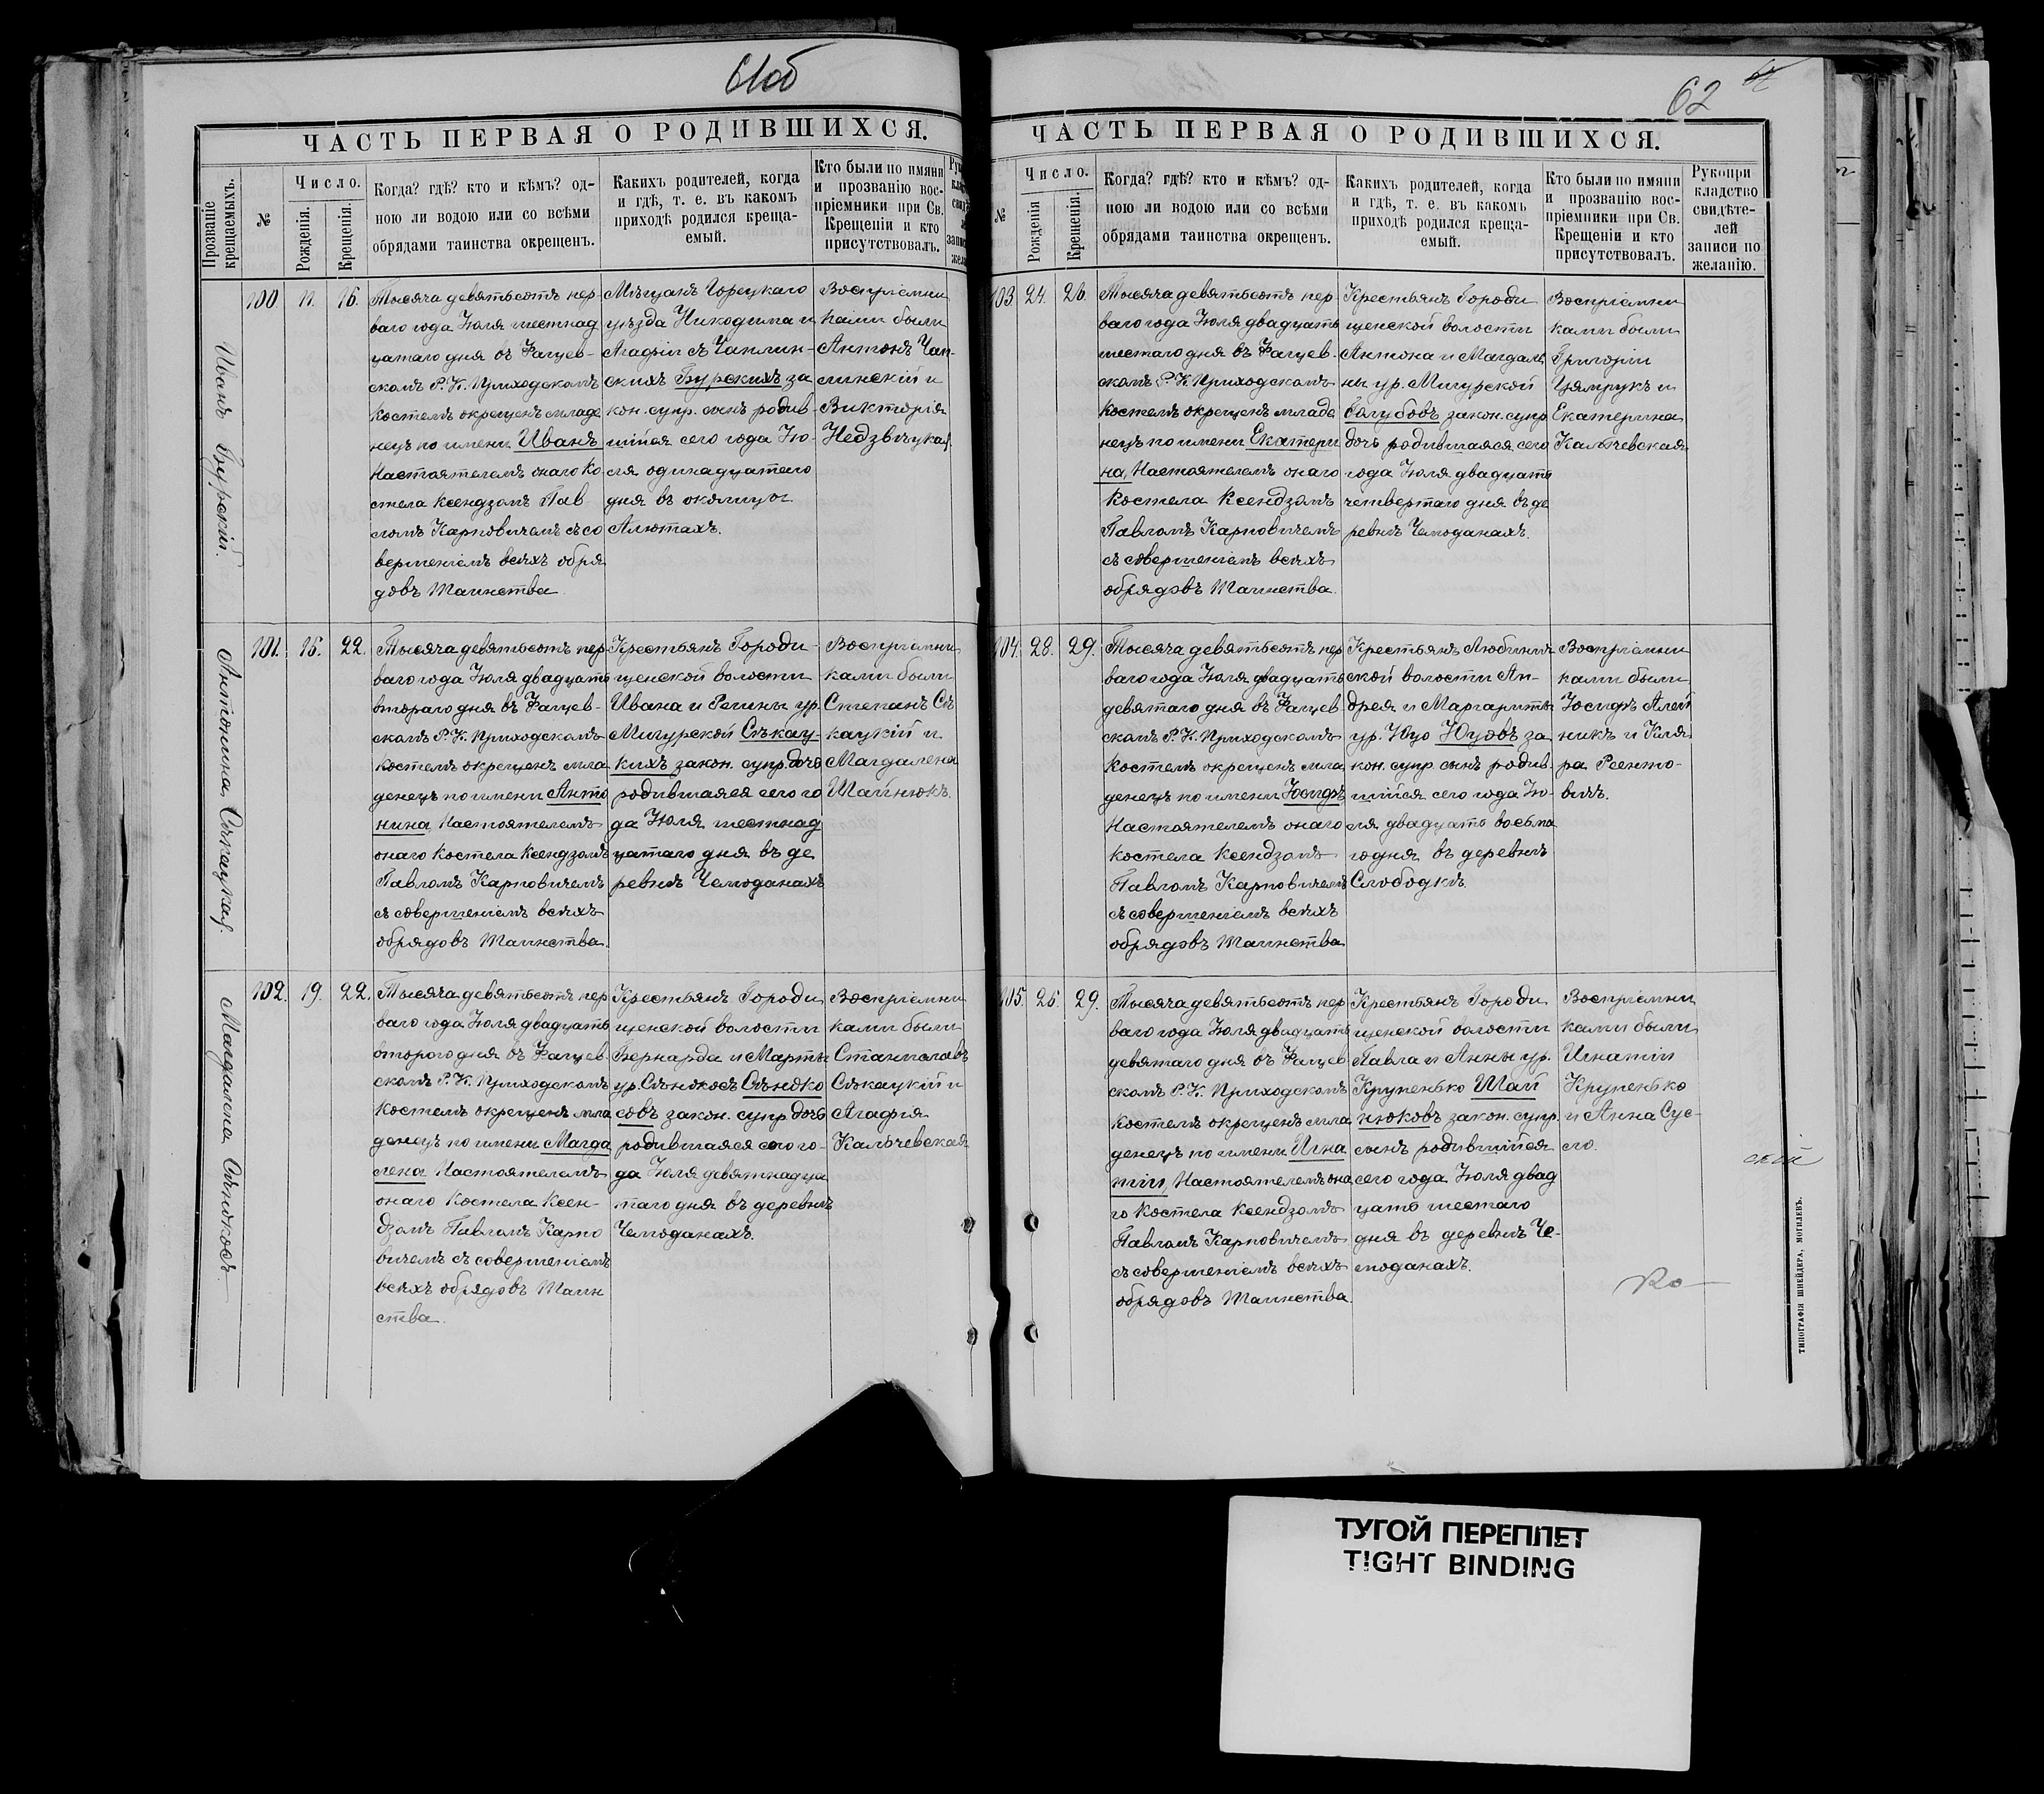 61об
ЧАСТЬ ПЕРВАЯ О РОДИВШИХСЯ.
Прозваніе крещаемыхъ.
№
Число.
Рожденія.
Крещенія.
Когда? гдѣ? кто и кѣмъ? од-
ною ли водою или со всѣми
обрядами таинства окрещенъ.
Какихъ родителей, когда
и гдѣ, т. е. въ какомъ
приходѣ родился креща-
емый.
Кто были по имяни
и прозванію вос-
пріемники при Св.
Крещеніи и кто
присутствовалъ.
Иванъ Бурскій.
100
11.
16.
Тысяча девятьсотъ пер-
ваго года Іюля шестнад
цатаго дня въ Фащев-
скомъ Р. К. Приходскомъ
костелѣ окрещенъ младе
нецъ по имени Иванъ
Настоятелемъ онаго Ко
стела Ксендзомъ Пав
ломъ Карповичемъ съ со
вершеніемъ всѣхъ обря
довъ Таинства
Мѣщанъ Горецкаго
уѣзда Никодима и
Агафіи съ Чаплин-
скихъ Бурскихъ за
кон. супр. сынъ родив-
шійся сего года Ію-
ля одинадцатаго
дня въ околицы
Алютахъ.
Воспріемни
ками были
Антонъ Чап-
линскій и
Викторія
Недзвѣцкая
Антонина Сѣкацкая.
101.
16.
22.
Тысяча девятьсотъ пер
ваго года Іюля двадцать
втораго дня въ Фащев-
скомъ Р. К. Приходскомъ
костелѣ окрещенъ мла
денецъ по имени Анто
нина Настоятелемъ
онаго Костела Ксендзомъ
Павломъ Карповичемъ
съ совершеніемъ всѣхъ
обрядовъ Таинства.
Крестьянъ Городи-
щенской волости
Ивана и Регины ур.
Мигурской Сѣкац-
кихъ закон. супр. дочь
родившаяся сего го
да Іюля шестнад
цатаго дня въ де
ревнѣ Чемоданахъ
Воспріемни
ками были
Степанъ Сѣ
кацкій и
Магдалена
Шайнюкъ.
Магдалена Сѣнокосъ.
102.
19.
22.
Тысяча девятьсотъ пер
ваго года Іюля двадцать
второго дня въ Фащев
скомъ Р. К. Приходскомъ
костелѣ окрещенъ мла
денецъ по имени Магда
лена Настоятелемъ
онаго Костела Ксен-
дзомъ Павломъ Карпо
вичемъ съ совершеніемъ
всѣхъ обрядовъ Таин
ства.
Крестьянъ Городи
щенской волости
Бернарда и Марты
ур. Сѣнокосъ Сѣноко
совъ закон. супр. дочь
родившаяся сего го-
да Іюля девятнадца
таго дня въ деревнѣ
Чемоданахъ.
Воспріемни
ками были
Станиславъ
Сѣкацкій и
Агафія
Кальчевская
62
ЧАСТЬ ПЕРВАЯ О РОДИВШИХСЯ.
№
Число.
Рожденія
Крещенія.
Когда? гдѣ? кто и кѣмъ? од-
ною ли водою или со всѣми
обрядами таинства окрещенъ.
Какихъ родителей, когда
и гдѣ, т. е. въ какомъ
приходѣ родился креща-
емый.
Кто были по имяни
и прозванію вос-
пріемники при Св.
Крещеніи и кто
присутствовалъ.
Рукопри
кладство
свидѣте-
лей
записи по
желанію.
103
24.
26.
Тысяча девятьсотъ пер-
ваго года Іюля двадцать
шестаго дня въ Фащев-
скомъ Р. К. Приходскомъ
костелѣ окрещенъ младе
нецъ по имени Екатери
на, Настоятелемъ онаго
Костела Ксендзомъ
Павломъ Карповичемъ
съ совершеніемъ всѣхъ
обрядовъ Таинства.
Крестьянъ Городи
щенской волости
Антона и Магдале
ны ур. Мигурской
Голубовъ закон. супр
дочь родившаяся сего
года Іюля двадцать
четвертаго дня въ де
ревнѣ Чемоданахъ.
Воспріемни
ками были
Григорій
Цямрукъ и
Екатерина
Кальчевская
104.
28.
29.
Тысяча девятьсотъ пер
ваго года Іюля двадцать
девятаго дня въ Фащев
скомъ Р. К. Приходскомъ
Костелѣ окрещенъ мла
денецъ по имени Іосифъ
Настоятелемъ онаго
Костела Ксендзомъ
Павломъ Карповичемъ
съ совершеніемъ всѣхъ
обрядовъ Таинства
Крестьянъ Любинич
ской волости Ан-
дрея и Маргариты
ур. Юцо Юцовъ за
кон. супр. сынъ родив-
шійся сего года Ію-
ля двадцать восьма
го дня въ деревнѣ
Слободкѣ.
Воспріемни
ками были
Іосифъ Алей
никъ и Кля
ра Реенто-
вичъ.
105.
26.
29.
Тысяча девятьсотъ пер
ваго года Іюля двадцать
девятаго дня въ Фащев
скомъ Р. К. Приходскомъ
Костелѣ окрещенъ мла
денецъ по имени Игна
тій, Настоятелемъ она
го Костела Ксендзомъ
Павломъ Карповичемъ
съ совершеніемъ всѣхъ
обрядовъ Таинства.
Крестьянъ Городи
щенской волости
Павла и Анны ур.
Крупенько Шай
нюковъ закон. супр.
сынъ родившійся
сего года Іюля двад
цать шестаго
дня въ деревнѣ Че-
моданахъ.
Воспріемни
ками были
Игнатій
Крупенько
и Анна Сус-
ло.
ской
Ко
ТИПОГРАФІЯ ШНЕЙДЕРА, МОГИЛЕВЪ.
ТУГОЙ ПЕРЕПЛЕТ
TIGHT BINDING